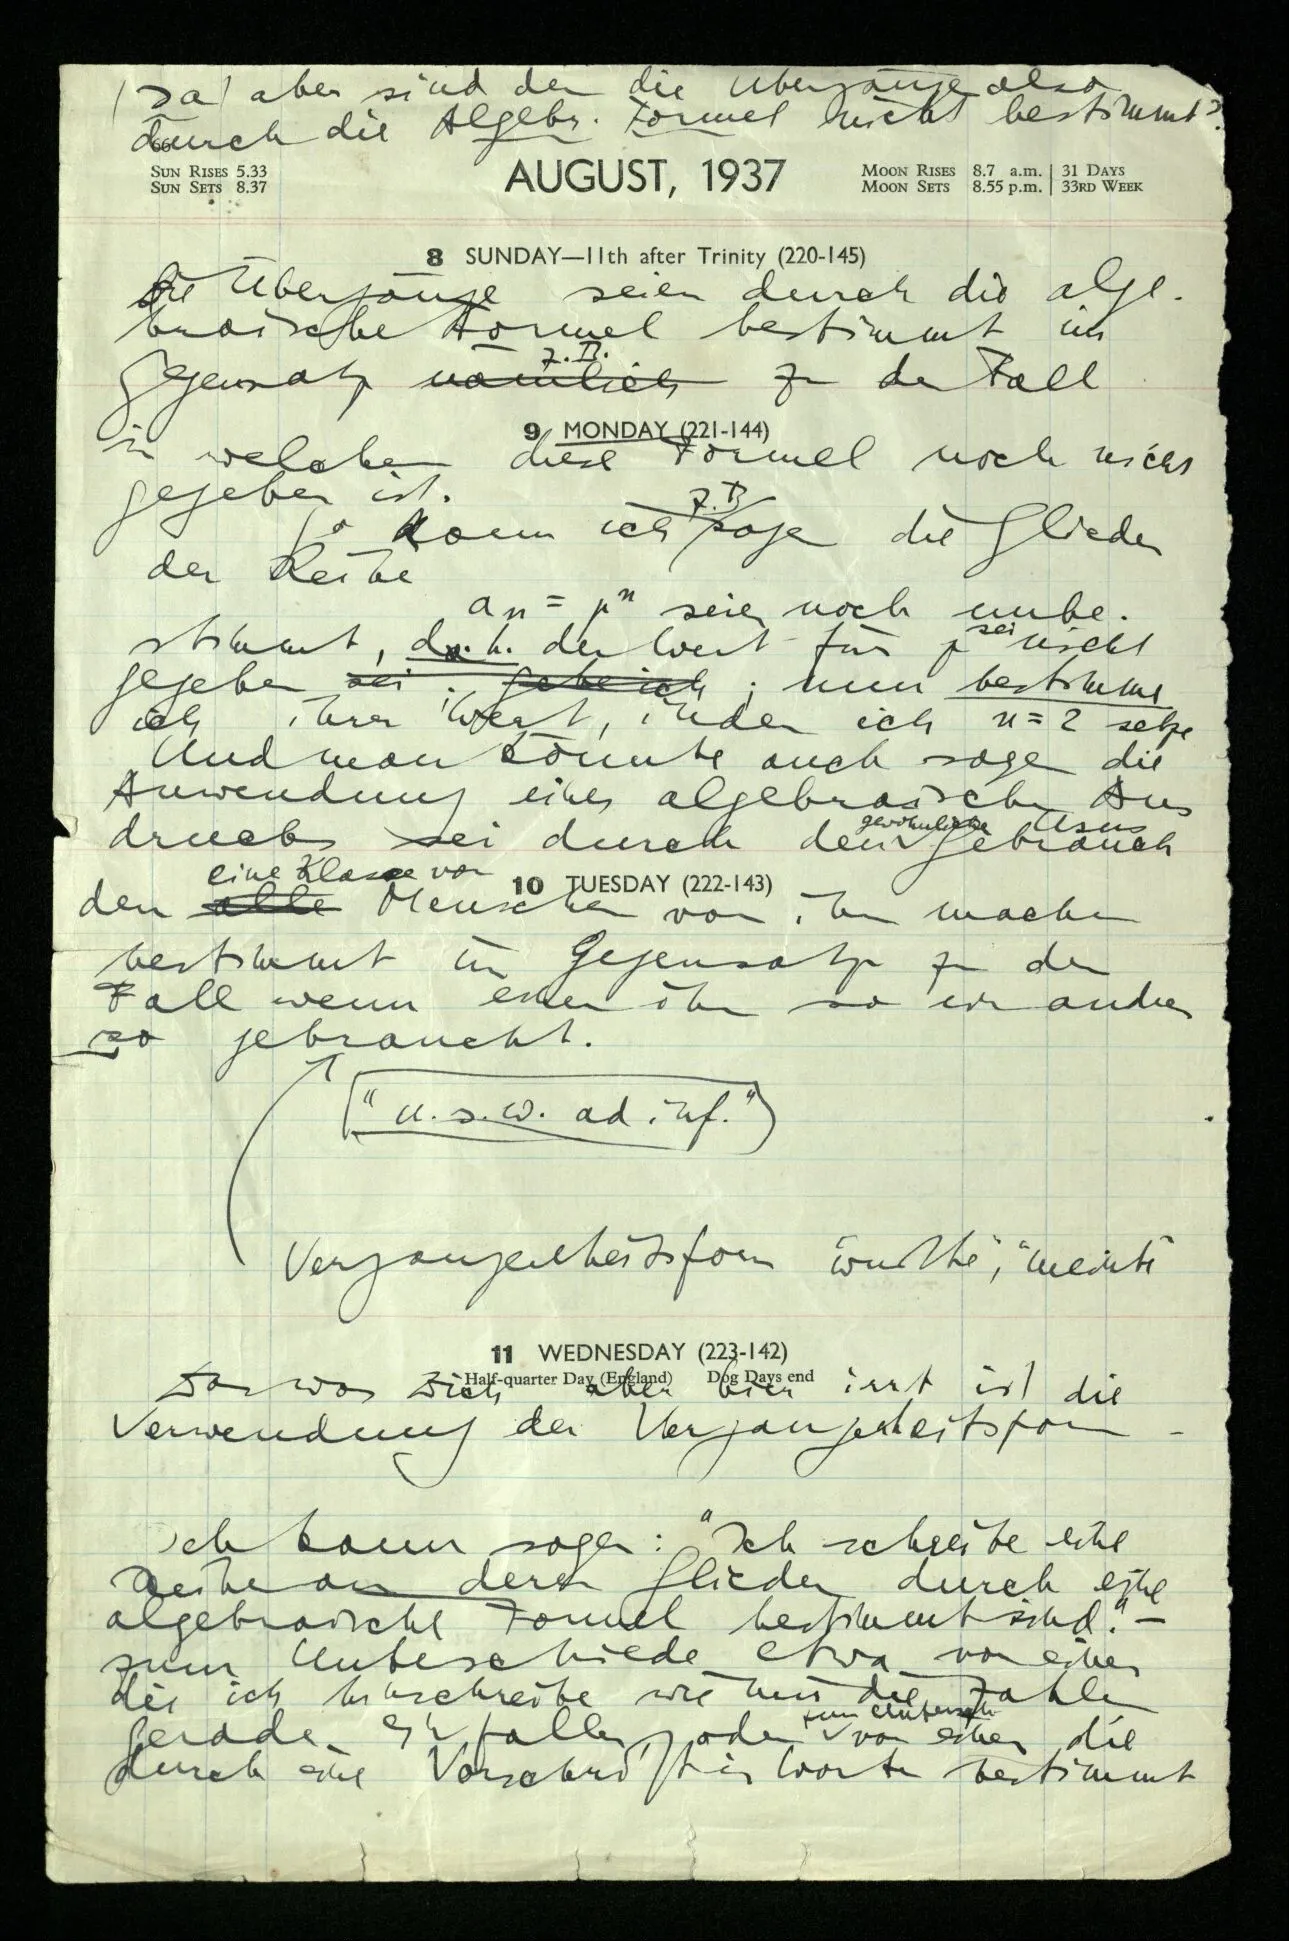 Ja aber sind den die Übergänge also
durch die Algebr. Formel nicht bestimmt?
66
SUN RISES 5.33
SUN SETS 8.37
AUGUST, 1937
MOON RISES 8.7 a.m. | 31 DAYS
MOON SETS 8.55 p.m. | 33RD WEEK
8 SUNDAY—11th after Trinity (220-145)
Die Übergänge seien durch die alge-
braische Formel bestimmt im
z.B.
Gegensatz nämlich zu dem Fall
9 MONDAY (221-144)
in welchem diese Formel noch nicht
gegeben ist.
z.B.
So kann ich sagen die Glieder
der Reihe
aₙ = pⁿ seien noch unbe-
stimmt, d.h. der Wert für p sei nicht
gegeben sei. ; nun bestimme
ich ihren Wert, indem ich n = 2 setze
Und man könnte auch sagen die
Anwendung eines algebraischen Aus
gewöhnlichen Usus
drucks sei durch den Gebrauch
eine Klasse von
10 TUESDAY (222-143)
den alle Menschen von ihm machen
bestimmt im Gegensatz zu dem
Fall wenn einer ihn so ein andrer
so gebraucht.
("u.s.w. ad inf.")
Vergangenheitsform "wußte", "meinte"
11 WEDNESDAY (223-142)
Half-quarter Day (England) Dog Days end
Das was Dich aber hier irrt ist die
Verwendung der Vergangenheitsform –
Ich kann sagen: "Ich schreibe eine
Reihe an deren Glieder durch eine
algebraische Formel bestimmt sind." –
zum Unterschiede etwa von einer
die ich hinschreibe wie mir die Zahlen
zum Untersch.
gerade einfallen, oder von einer die
durch eine Vorschrift in Worten bestimmt